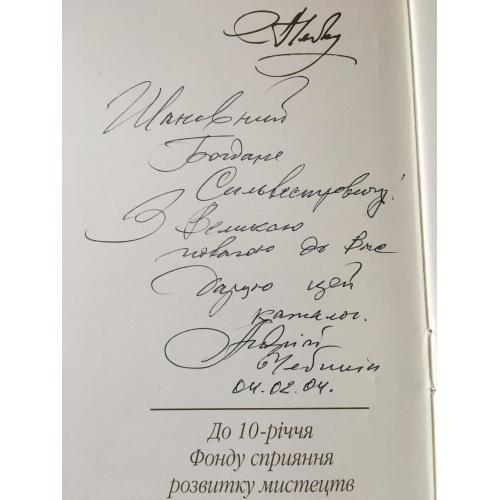 Шановний
Богдане
Сильвестровичу!
З великою
повагою до Вас
дарую цей
каталог.
Андрій
Чебикін
04.02.04.
До 10-річчя
Фонду сприяння
розвитку мистецтв